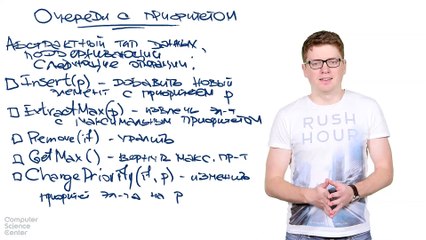 Очереди с приоритетом
Абстрактный тип данных,
поддерживающий
следующие операции:
Insert(p) – добавить новый
элемент с приоритетом p
ExtractMax(p) – извлечь эл-т
с максимальным приоритетом
Remove(it) – удалить
GetMax() – вернуть макс. пр-т
ChangePriority(it, p) – изменить
приоритет эл-та на p
RUSH
HOUR
Computer
Science
Center